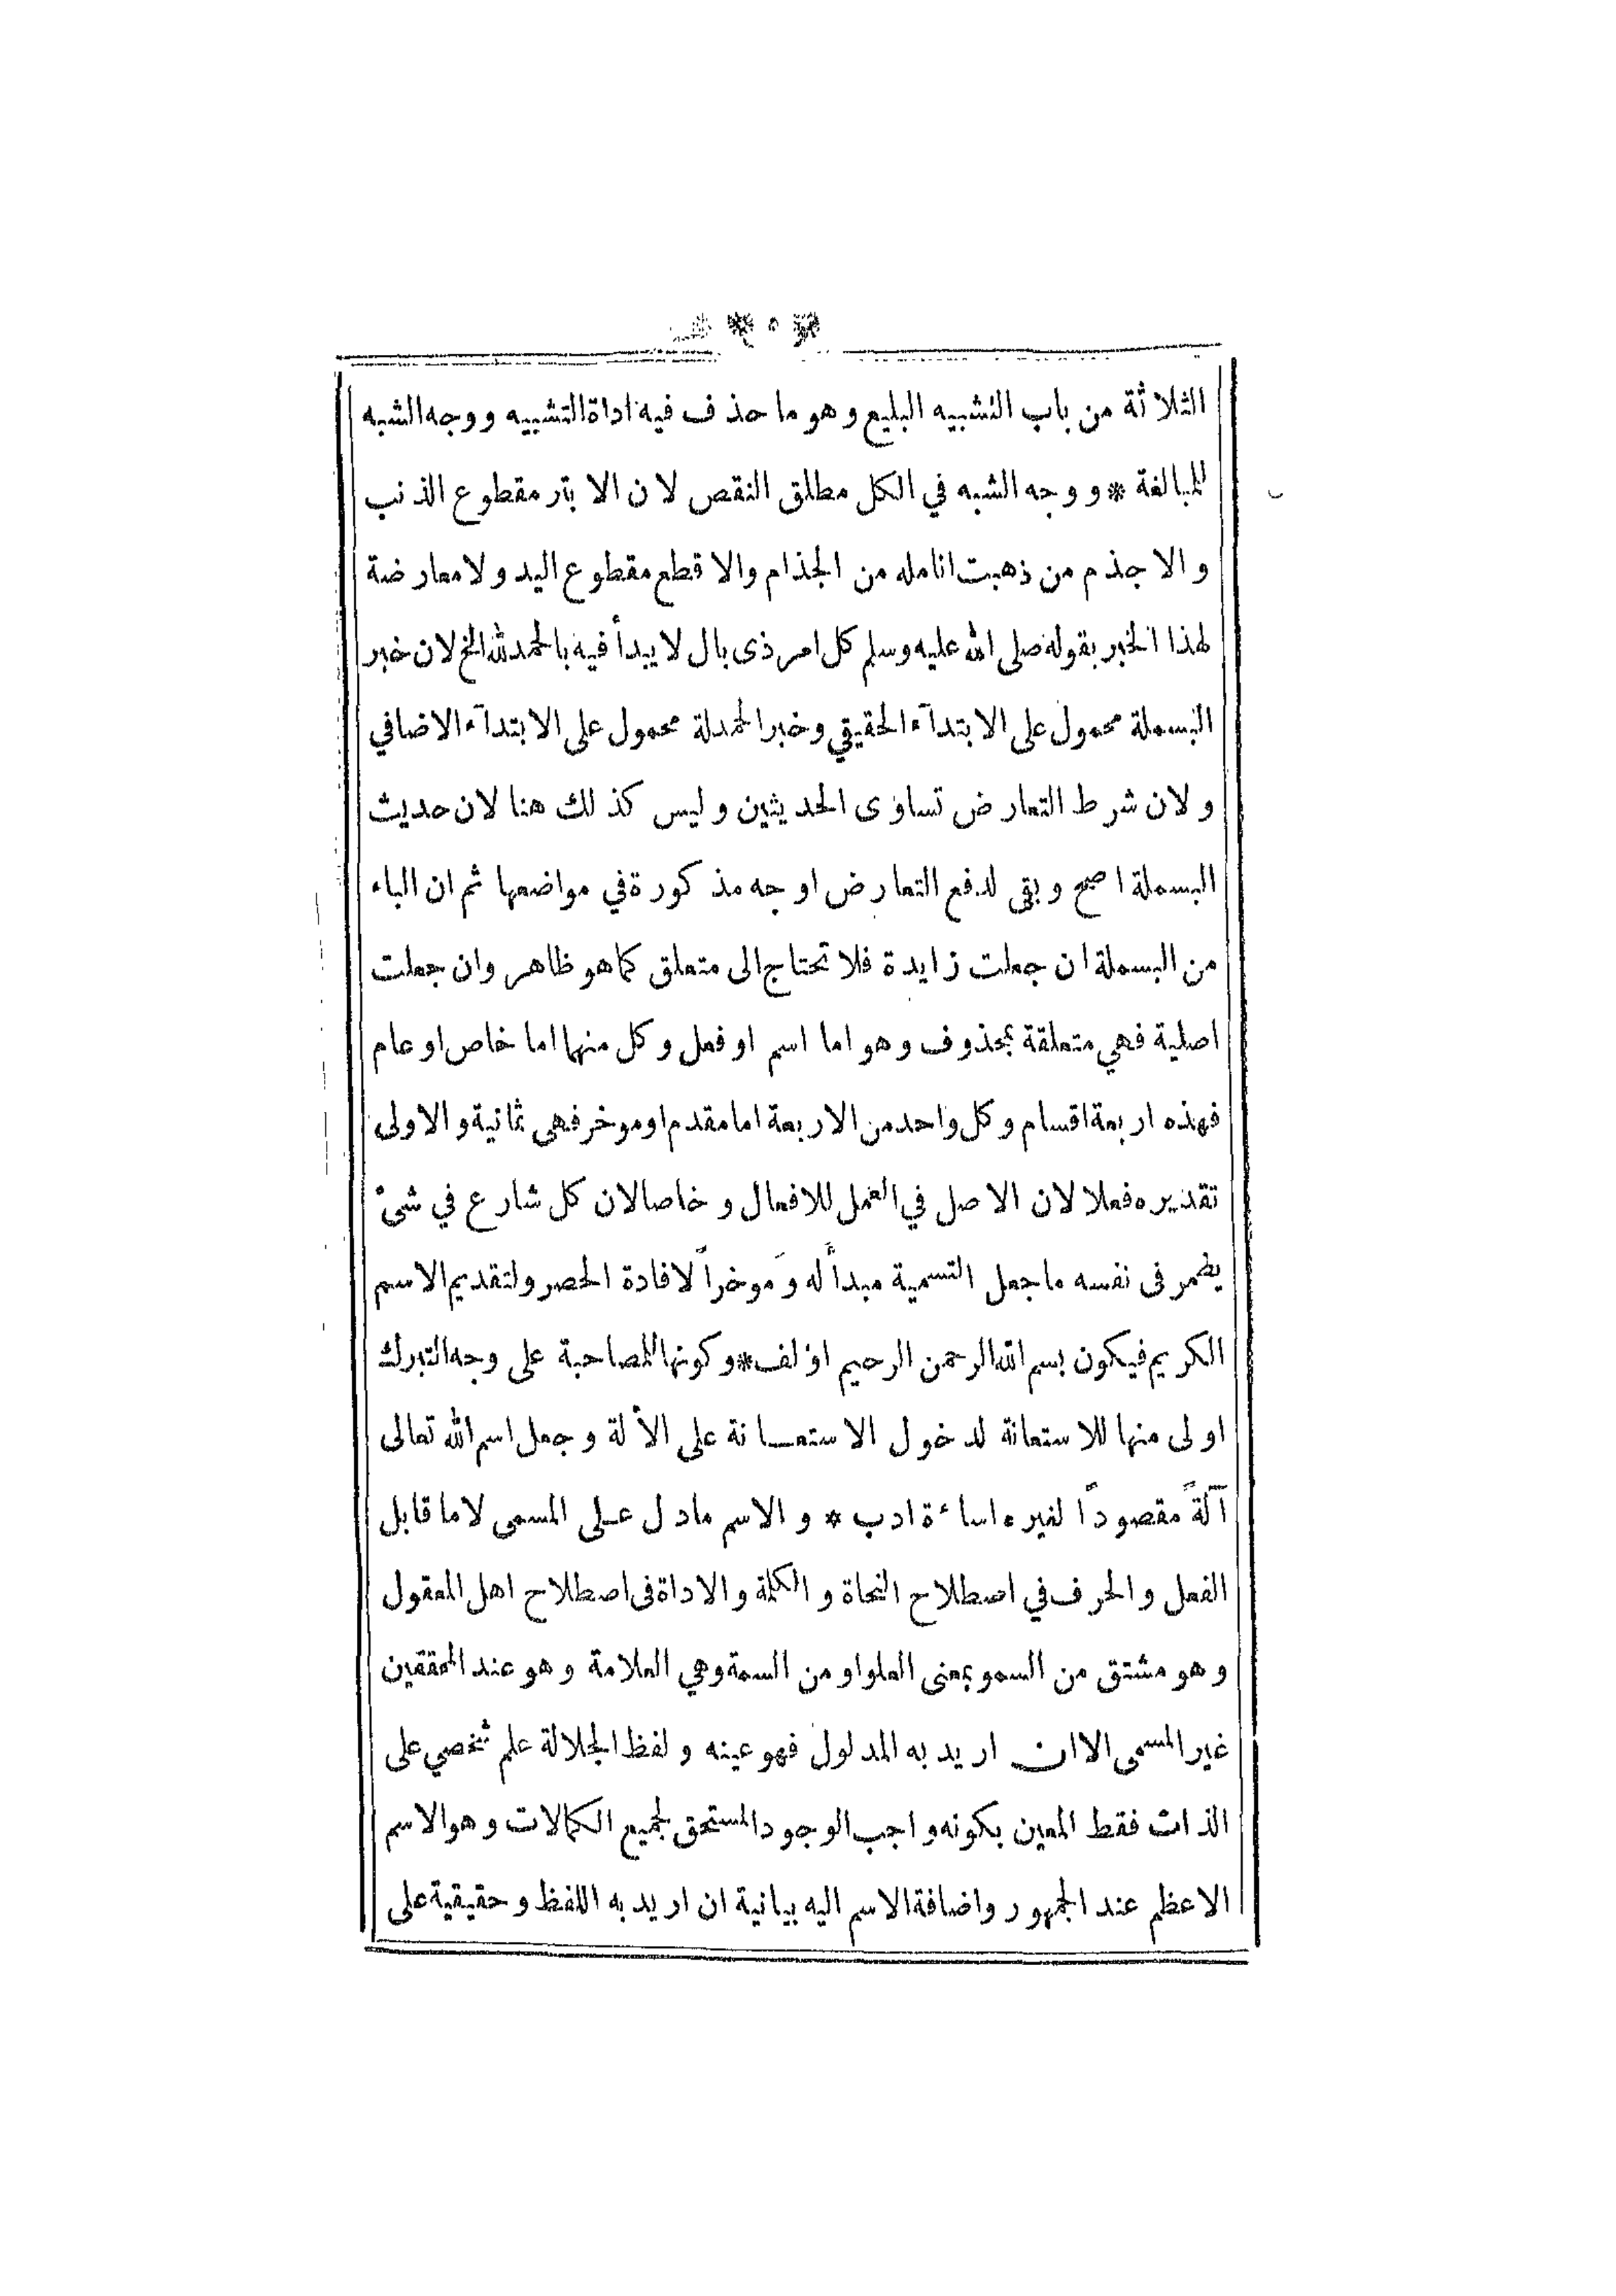 * ٥ *
الثلاثة من باب التشبيه البليغ وهو ما حذف فيه اداة التشبيه ووجه الشبه
للمبالغة * ووجه الشبه في الكل مطلق النقص لان الابتر مقطوع الذنب
والاجذم من ذهبت انامله من الجذام والاقطع مقطوع اليد ولا معارضة
لهذا الخبر بقوله صلى الله عليه وسلم كل امر ذى بال لا يبدأ فيه بالحمد لله الخ لان خبر
البسملة محمول على الابتدآء الحقيقي وخبر الحمدلة محمول على الابتدآء الاضافي
ولان شرط التعارض تساوى الحديثين وليس كذلك هنا لان حديث
البسملة اصح وبقى لدفع التعارض اوجه مذكورة في مواضعها ثم ان الباء
من البسملة ان جعلت زايدة فلا تحتاج الى متعلق كما هو ظاهر وان جعلت
اصلية فهي متعلقة بمحذوف وهو اما اسم او فعل وكل منهما اما خاص او عام
فهذه اربعة اقسام وكل واحد من الاربعة اما مقدم او موخر فهى ثمانية والاولى
تقديره فعلا لان الاصل في العمل للافعال وخاصا لان كل شارع في شئ
يضمر فى نفسه ما جعل التسمية مبدأ له وموخراً لافادة الحصر ولتقديم الاسم
الكريم فيكون بسم الله الرحمن الرحيم اؤلف * وكونها للمصاحبة على وجه التبرك
اولى منها للاستعانة لدخول الاستعانة على الألة وجعل اسم الله تعالى
آلةً مقصوداً لغيره اساءة ادب * والاسم ما دل على المسمى لا ما قابل
الفعل والحرف في اصطلاح النحاة والكلمة والاداة فى اصطلاح اهل المعقول
وهو مشتق من السمو بمعنى العلو او من السمة وهي العلامة وهو عند المحققين
غير المسمى الا ان اريد به المدلول فهو عينه ولفظ الجلالة علم شخصي على
الذات فقط المعين بكونه واجب الوجود المستحق لجميع الكمالات وهو الاسم
الاعظم عند الجمهور واضافة الاسم اليه بيانية ان اريد به اللفظ وحقيقية على